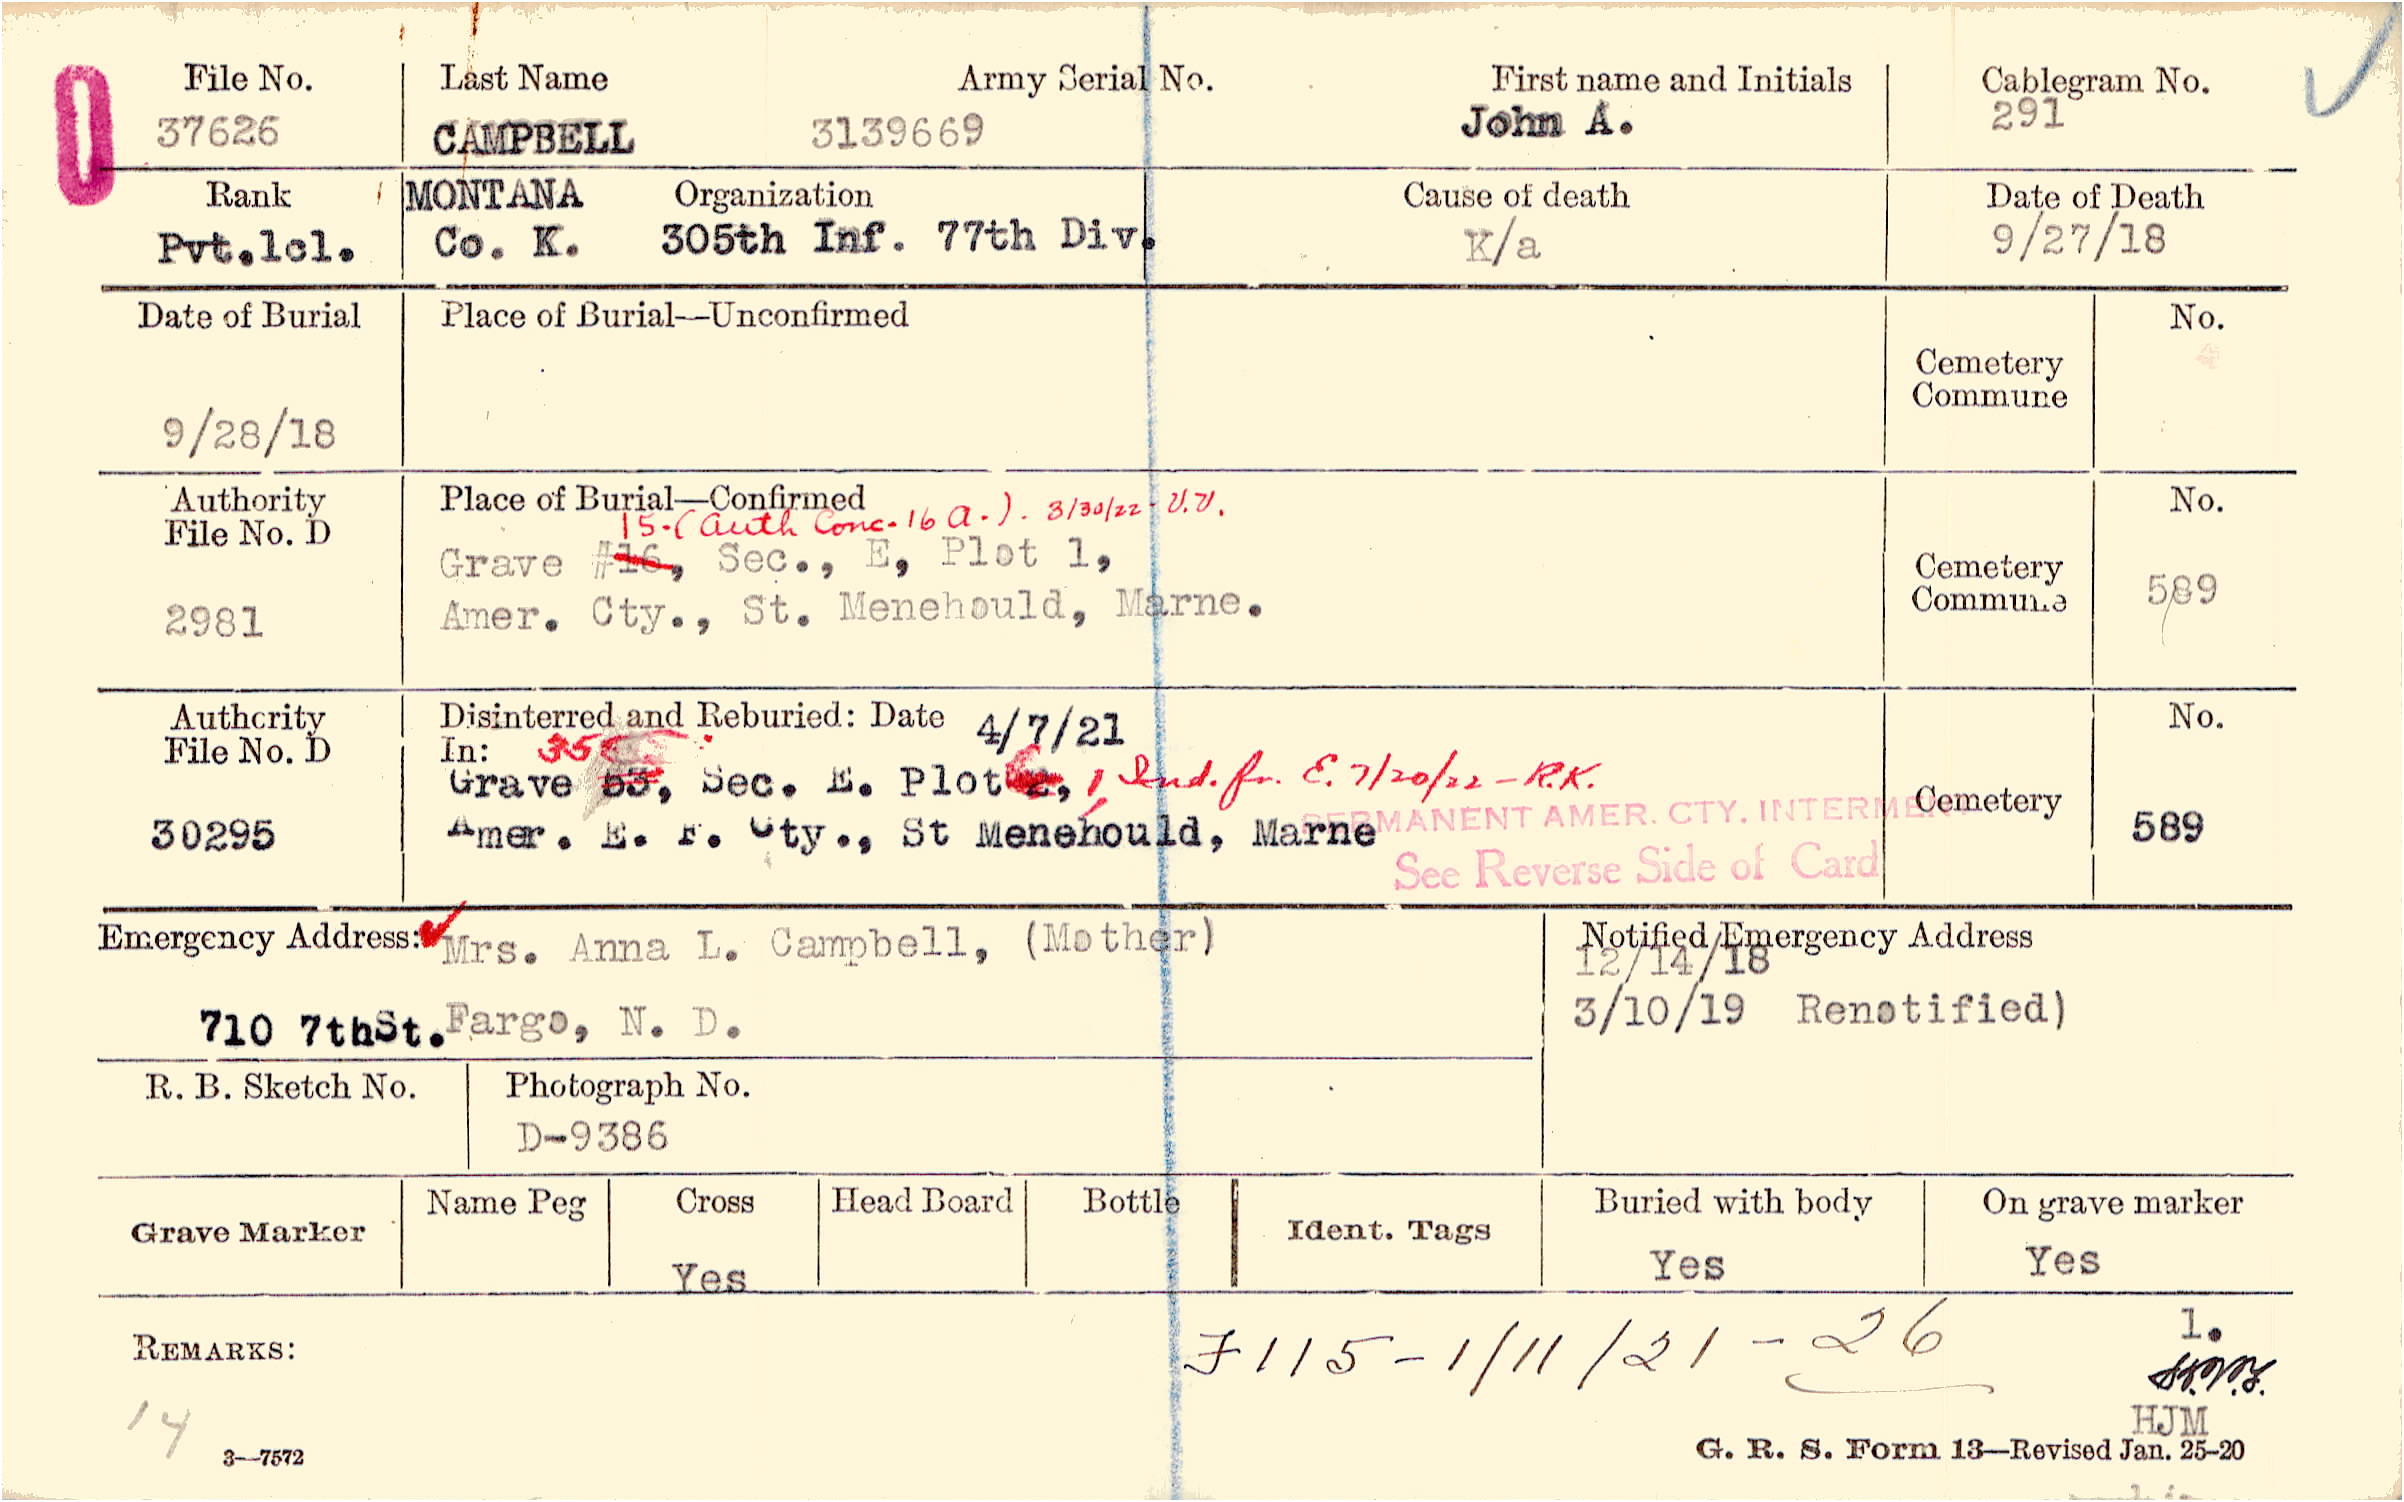 File No. Last Name Army Serial No. First name and Initials Cablegram No.
37626 CAMPBELL 3139669 John A. 291
Rank MONTANA Organization Cause of death Date of Death
Pvt.1cl. Co. K. 305th Inf. 77th Div. K/a 9/27/18
Date of Burial Place of Burial—Unconfirmed No.
Cemetery
Commune
9/28/18
Authority Place of Burial—Confirmed No.
File No. D 15-(Auth Conc. 16 A.). 3/30/22 - V.V.
Grave #16, Sec., E, Plot 1,
Cemetery
Commune 589
2981 Amer. Cty., St. Menehould, Marne.
Authority Disinterred and Reburied: Date 4/7/21 No.
File No. D In: 35
Grave 53, Sec. E. Plot 1 Ind. fr. E. 7/20/22 - R.K.
PERMANENT AMER. CTY. INTERMENT Cemetery
30295 Amer. E. F. Cty., St Menehould, Marne 589
See Reverse Side of Card
Emergency Address: Mrs. Anna L. Campbell, (Mother) Notified Emergency Address
12/14/18
710 7thSt. Fargo, N. D. 3/10/19 Renotified)
R. B. Sketch No. Photograph No.
D-9386
Grave Marker Name Peg Cross Head Board Bottle Ident. Tags Buried with body On grave marker
Yes Yes Yes
REMARKS: F115-1/11/21-26 1.
HJM
14
3—7572 G. R. S. Form 13—Revised Jan. 25-20